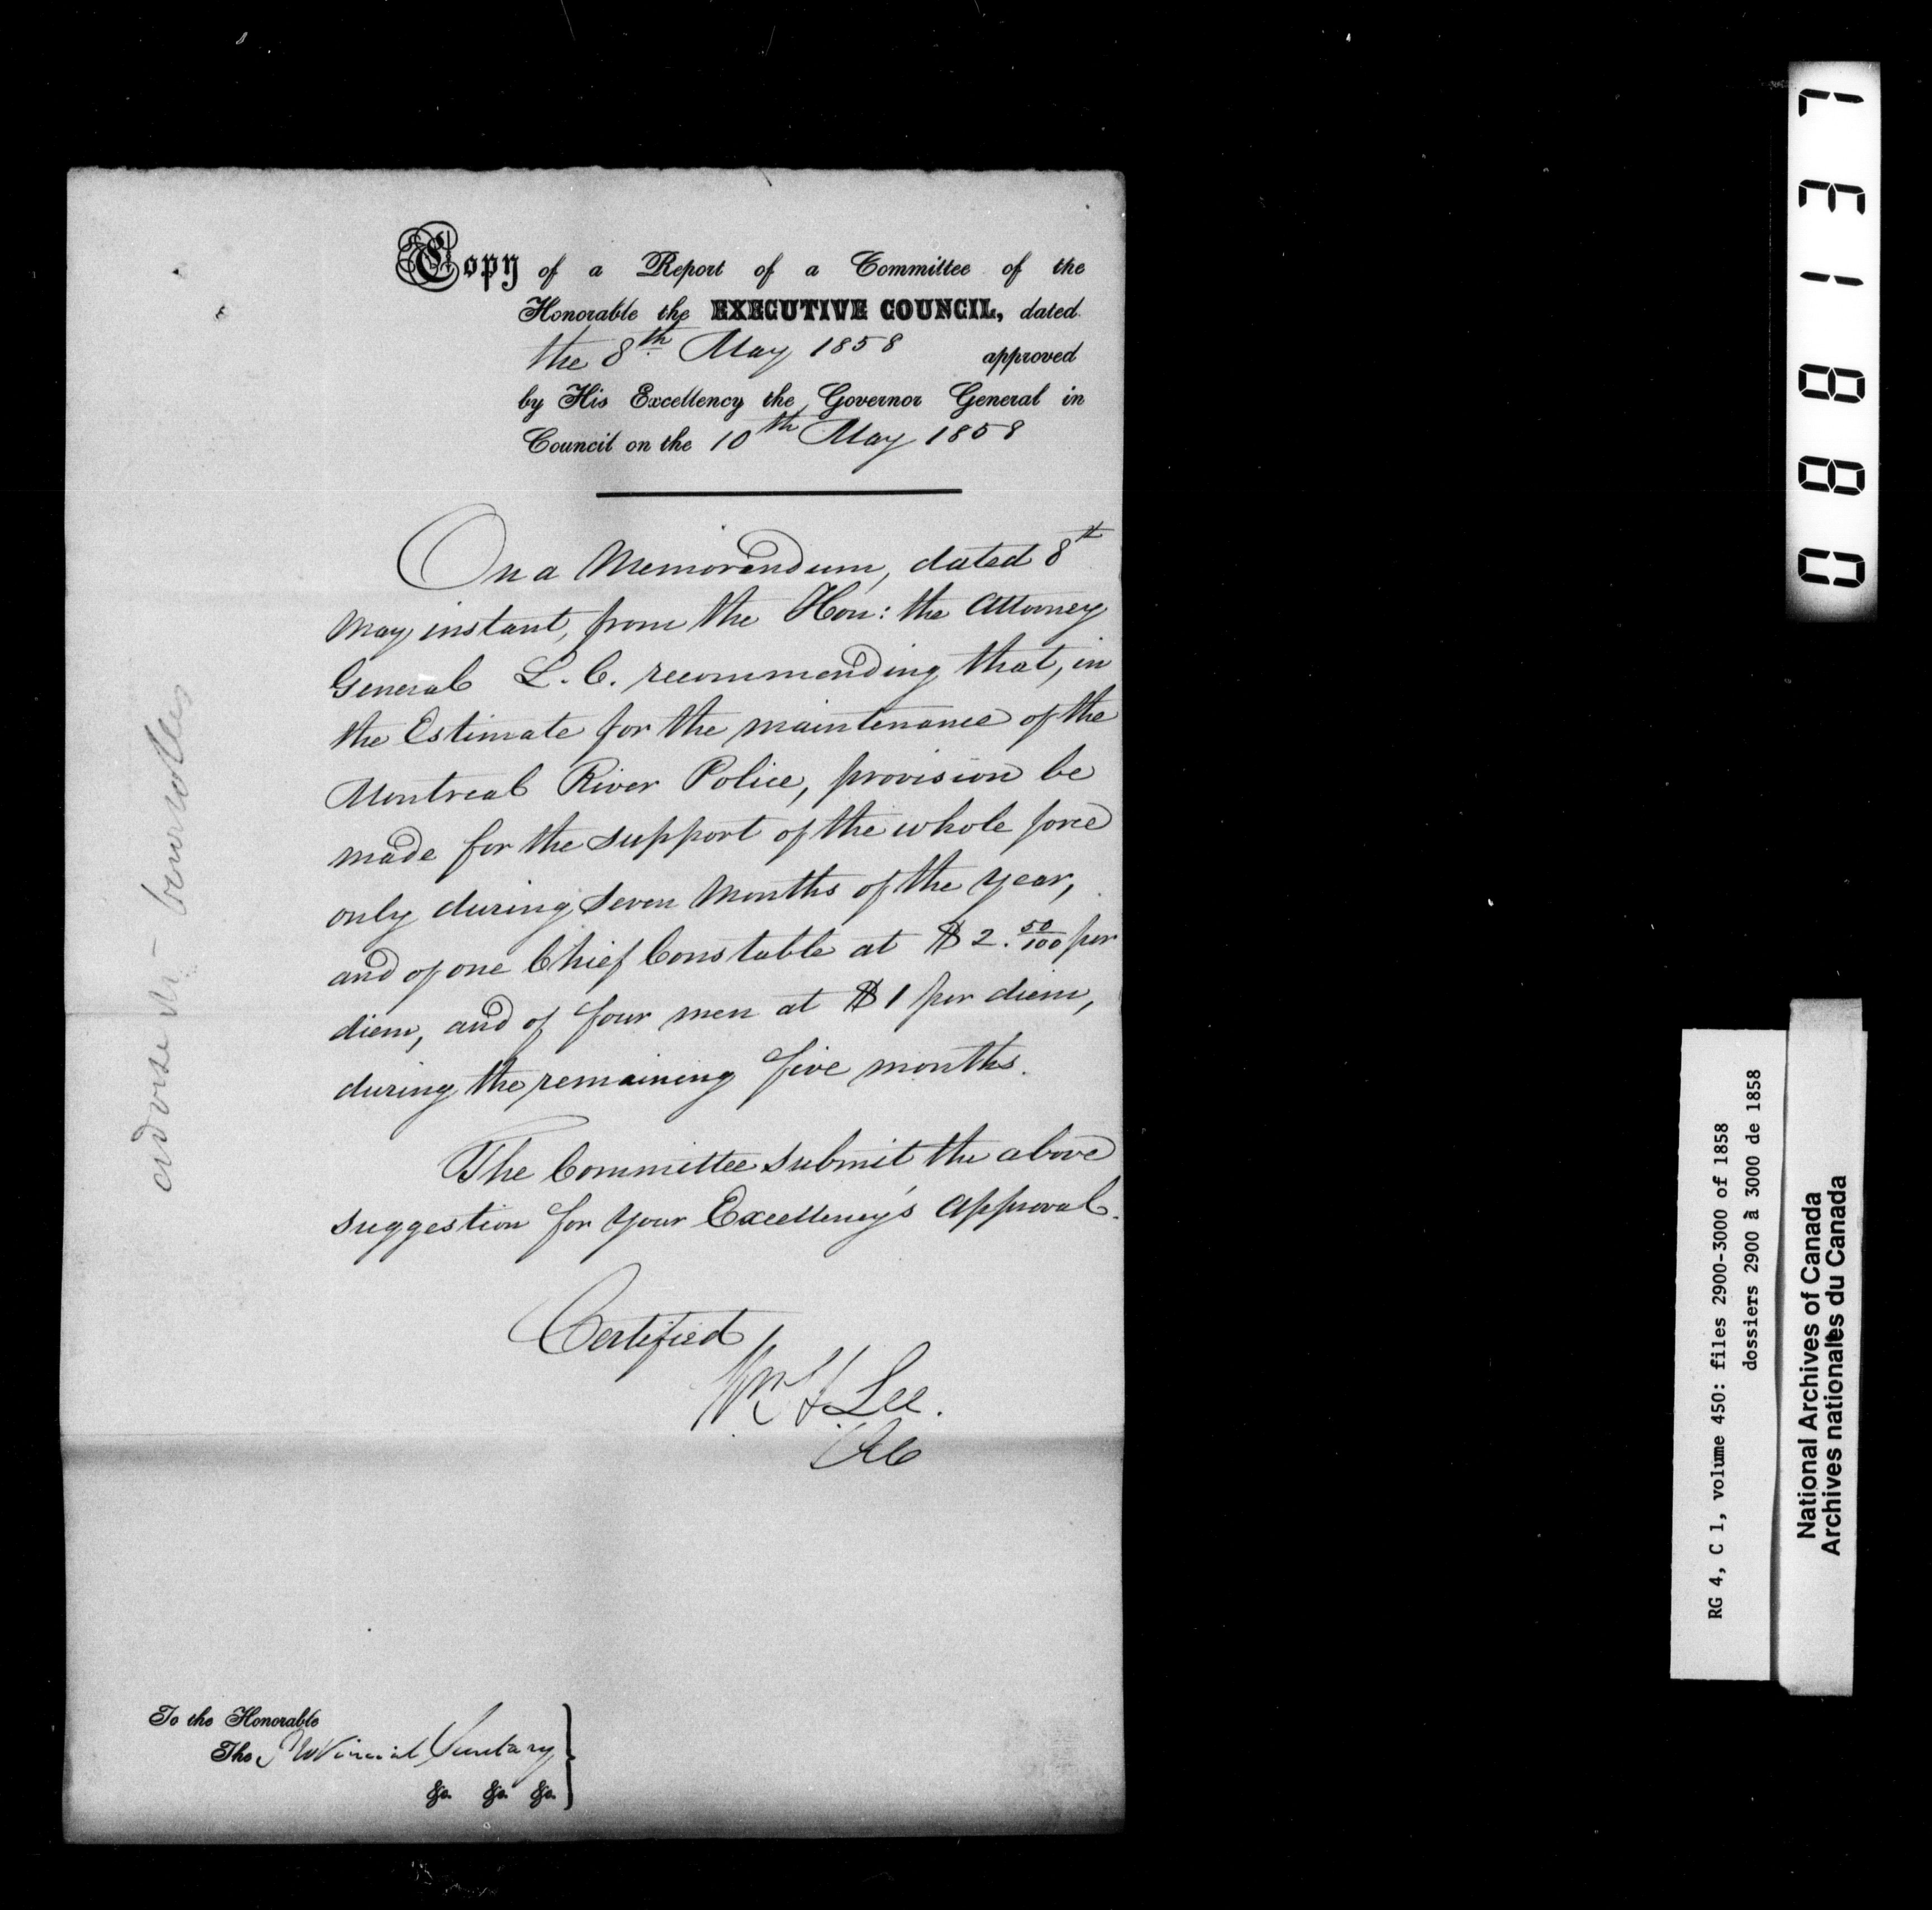 Copy of a Report of a Committee of the
Honorable the EXECUTIVE COUNCIL, dated
the 8th May 1858 approved
by His Excellency the Governor General in
Council on the 10th May 1858
On a Memorandum, dated 8th
May instant, from the Hon: the Attorney
General L. C. recommending that, in
the Estimate for the maintenance of the
Montreal River Police, provision be
made for the support of the whole force
only during seven Months of the year,
and of one Chief Constable at $2. 50/100 per
diem, and of four men at $1 per diem,
during the remaining five months.
The Committee submit the above
suggestion for your Excellency's approval.
Certified
Wm H Lee.
To the Honorable
The Provincial Secretary
&c. &c. &c.
088137
RG 4, C 1, volume 450: files 2900-3000 of 1858
dossiers 2900 à 3000 de 1858
National Archives of Canada
Archives nationales du Canada